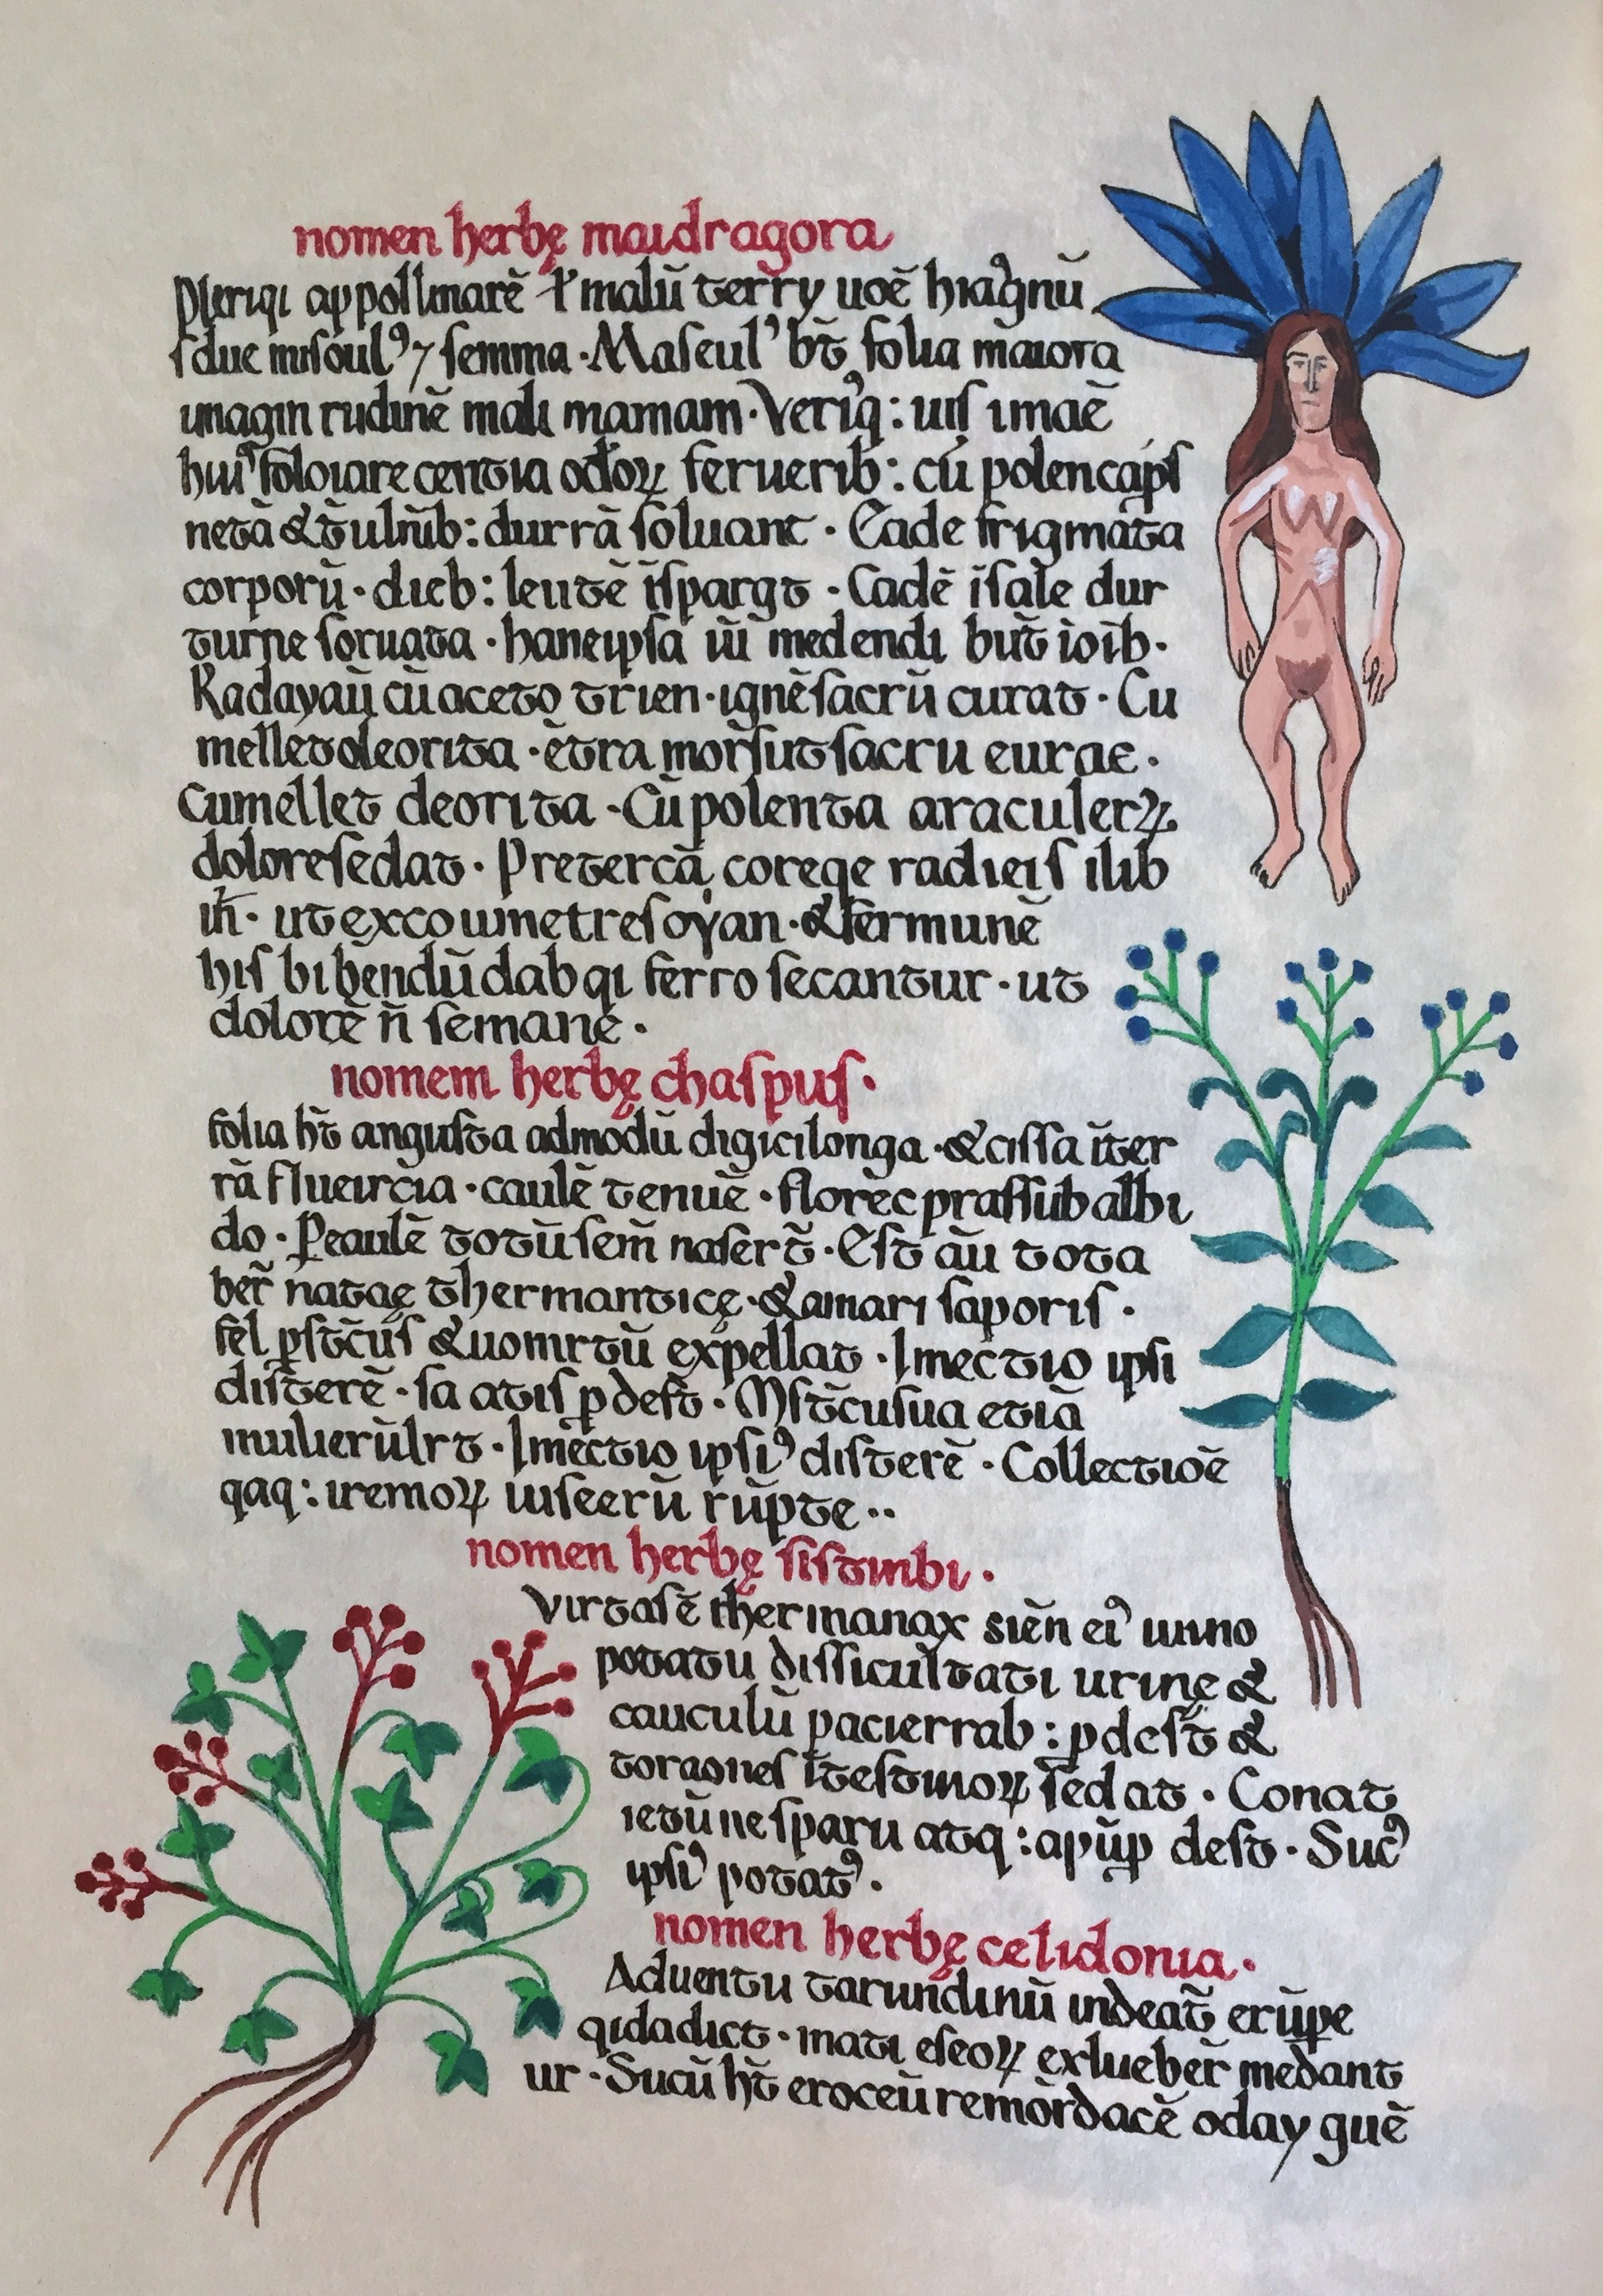 nomen herbę maıdragora
pleriqi appollinarē ł malū terry uoē hiag̉nū
sdue misoul⁹ ⁊ femma · Mascul’ bt̄ folia maiora
unagin rudinē mali mamam · Veriq̉: uis imaē
hui᷒ foloiare centia odoꝝ feruerib: cū polencaṕs
netā & t̄ulnīb: durrā soluant · Eade frigmata
corporū · dieb: leutē īspargt · Cadē īsale dur
turne soruata · haneipsā uī medendi but̄ ioīb·
Radayaū cū aceto trien · ignē sacrū curat · Cu
melletoleorita · ētra morsutsacru eurae ·
Cumellet deorita · Cū polenta araculerꝝ
doloresedat · Pretercā corege radieis ilib
ıħ · ut excouınetresoyan · & fermunē
his bibendū dabqi ferro secantur · ut
dolorē n̄ semane ·
nomem herbę chaspus ·
folia ht̄ angusta admodū digicilonga · & cissa īter
rā flueircia · caulē tenuē · florēc prassub albi
do · Peaulē totū sem̄ naser t̄ · Est aū tota
ber̄ nataę thermanticę · & amari saporis ·
fel pst̄cus & uomrtū expellat · Imectio ipsi
disterē · sa atis ꝑdest̄ · Mst̄cusua etiā
mulierūlrt · Imēctio ipsi⁹ disterē · Collectioē
qaq: iremoꝝ uiseerū rūpte ··
nomen herbę sistinbi ·
Virtasē thermanax siēn ei⁹ unno
potatu difficultati urinę &
cauculū pacierrab: ꝑdest̄ &
toraones ītestinoꝝ sedat · Conat
ietū ne sparu atq: apūꝑ dest · Suc⁹
ipsi⁹ potat⁹ ·
nomen herbę celidonia ·
Aduentu tarundinū indeat̄ erūpe
qidadict · mati eseoꝝ exlueber̄ medant
ur · Sucū ht̄ eroceū remōrdacē oday guē